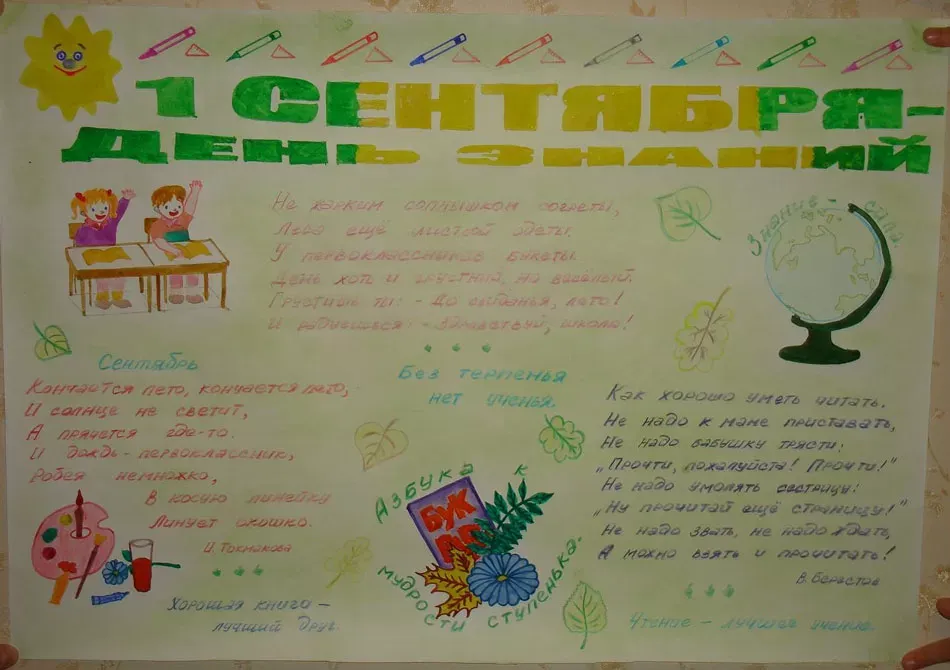 1 СЕНТЯБРЯ-
ДЕНЬ ЗНАНИЙ
Не жарким солнышком согреты,
Леса ещё листвой одеты.
У первоклассников букеты.
День хоть и грустный, но весёлый.
Грустишь ты: - До свиданья, лето!
И радуешься: - Здравствуй, школа!
Знание - сила.
Сентябрь
Кончается лето, кончается лето,
И солнце не светит,
А прячется где-то.
И дождь - первоклассник,
Робея немножко,
В косую линейку
Линует окошко.
И. Токмакова
Хорошая книга -
лучший друг.
Без терпенья
нет ученья.
Азбука к
БУК
мудрости ступенька.
Как хорошо уметь читать.
Не надо к маме приставать,
Не надо бабушку трясти:
„Прочти, пожалуйста! Прочти!"
Не надо умолять сестрицу:
„Ну прочитай ещё страницу!"
Не надо звать, не надо ждать,
А можно взять и прочитать!
В. Берестов
Чтение - лучшее учение.